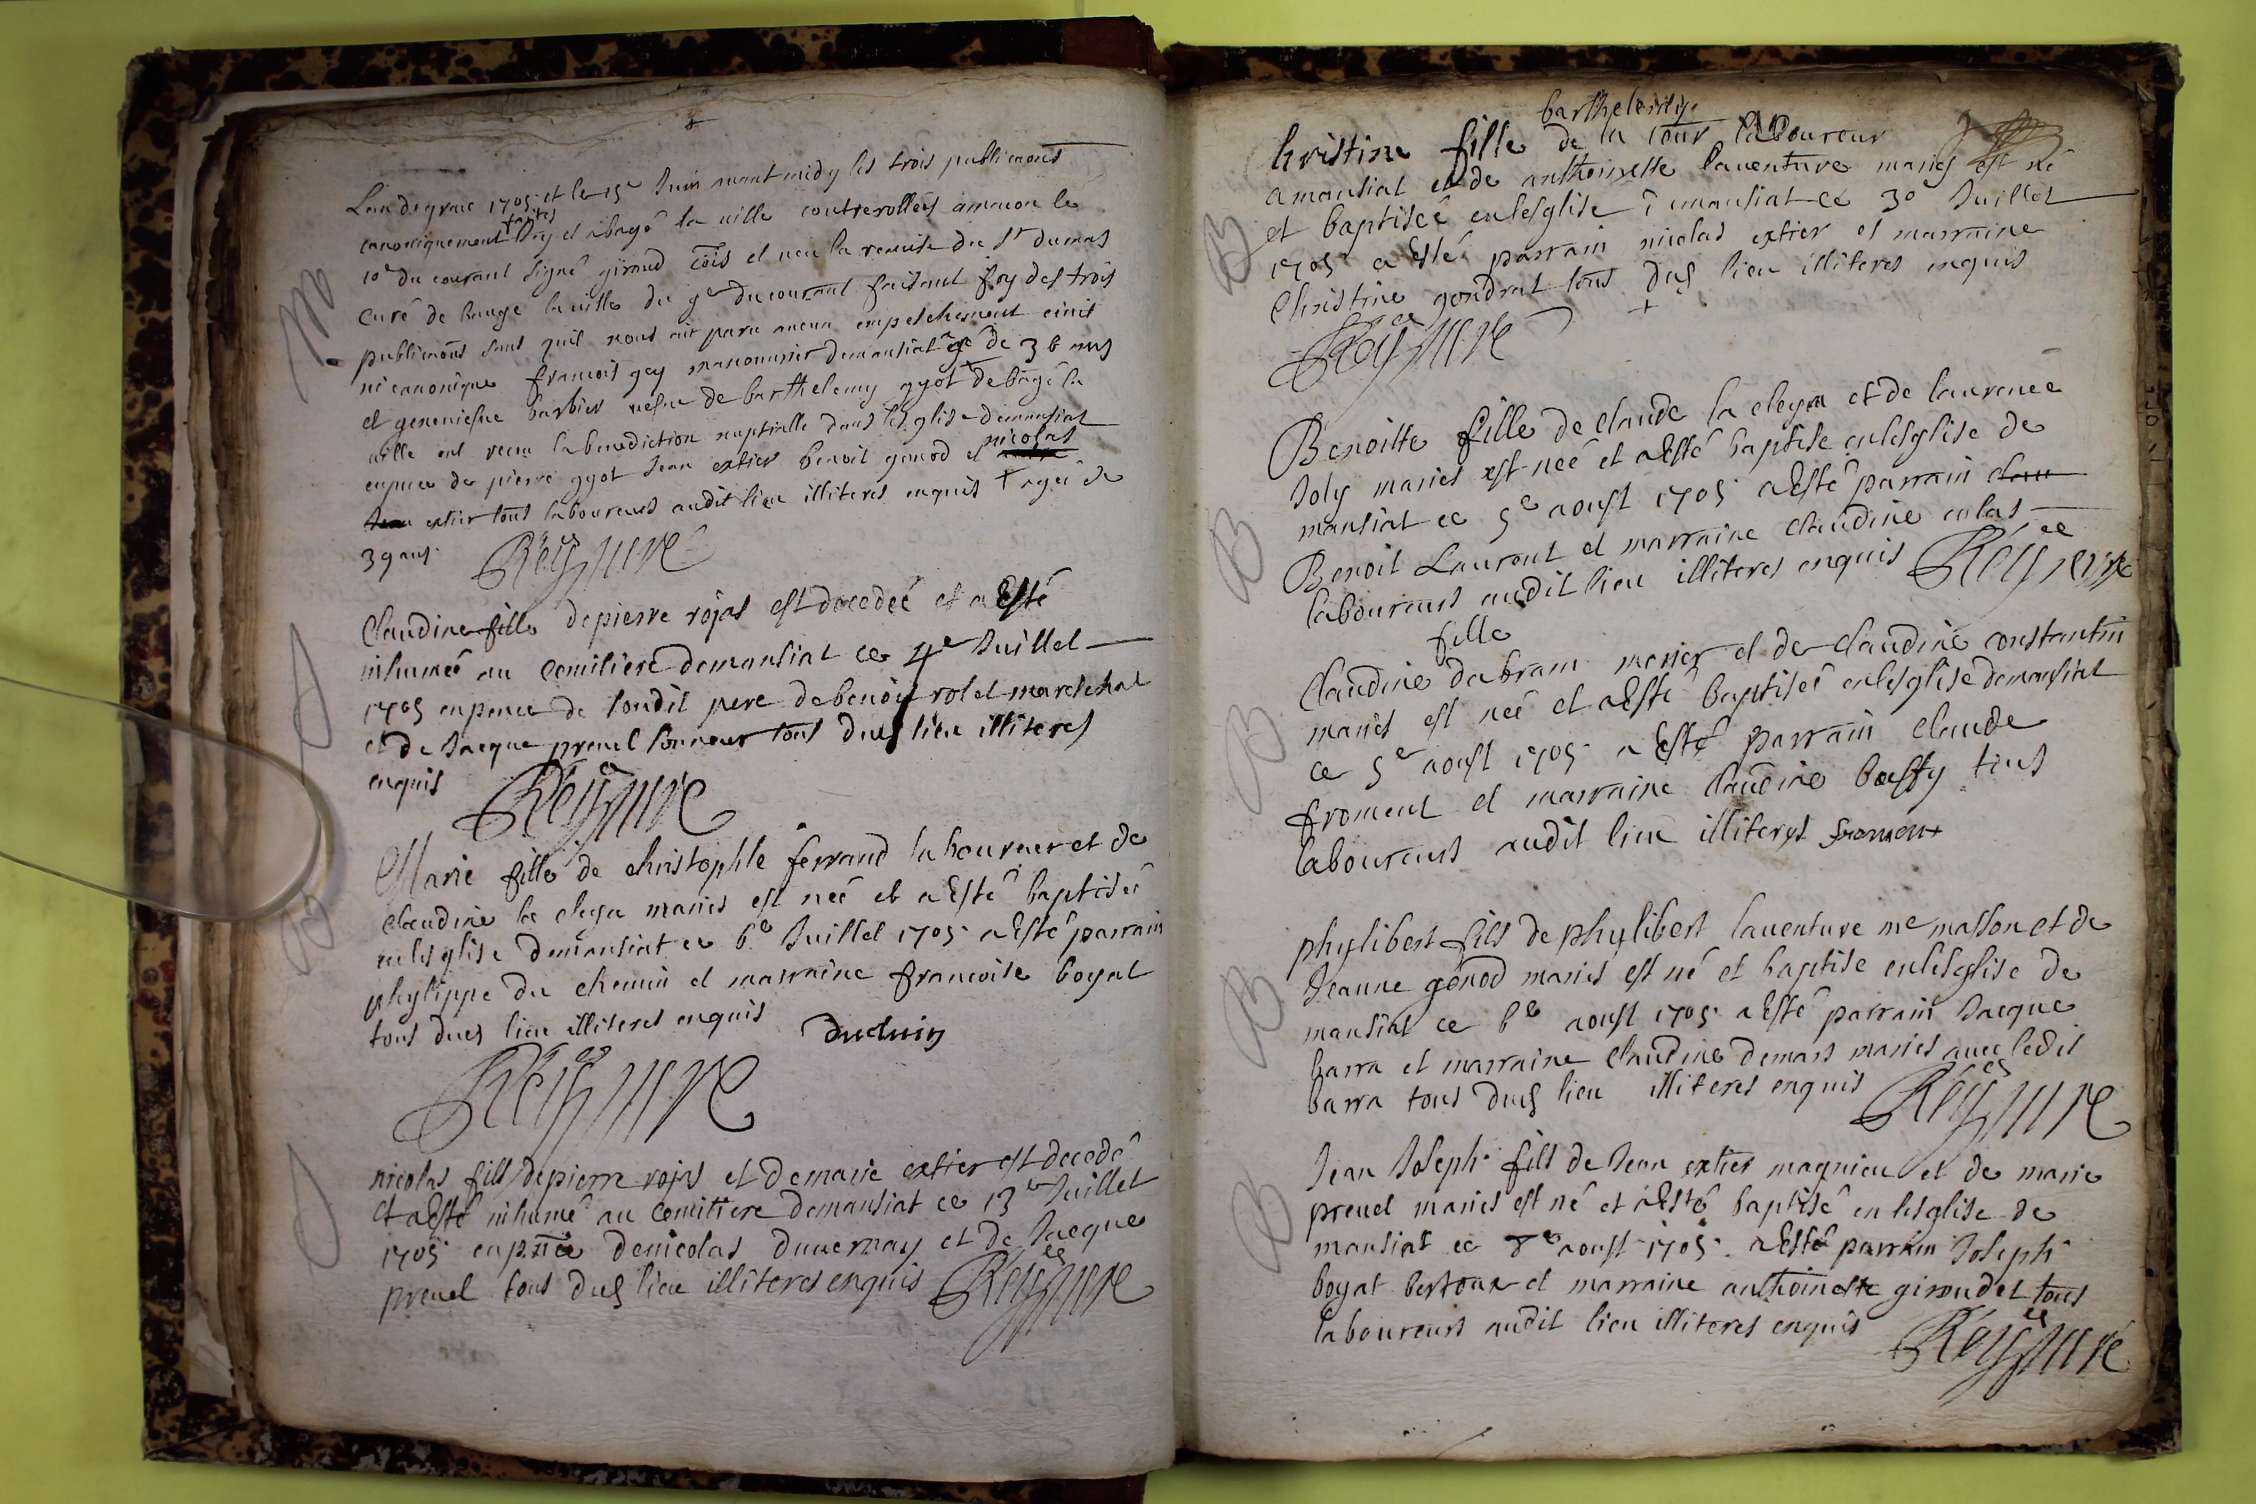 Lan de grace 1705 et le 15e Juin auant midy les trois publicaōns
canoniquement faites Icy et a bagé la uille controrollées a macon le
10e du courant signé giroud cōis et ueu la remise du Sr dumas
curé de baugé la uille du 9e du courant faisant foy des trois
publicaōns sans quil nous ait paru aucun empeschement ciuil
ni canonique francois gey manouurier demansiat agé de 36 ans
et geneuiefue barbier uefue de barthelemy gyot de bagé la
uille ont receu la benediction nuptialle dans leglise demansiat
enpnce de pierre gyot Jean extier benoit genod et nicolas
extier tous laboureurs audit lieu illiteres enquis + agée de
39 ans
Rey curé
Claudine fille depierre rojas est decedeé et a Esté
inhumeé au Cemitiere demansiat ce 4e Juillet
1705 enpence de sondit pere debenoit rolet mareschal
et de Jacque preuel sonneur tous dud lieu illiteres
enquis
Rey curé
Marie fille de christophle ferrand laboureur et de
claudine la cleya mariés est neé et a Esté baptiseé
enlesglise demansiat ce 6e Juillet 1705 a Esté parrain
phylippe du chemin et marraine francoise boyat
tous dud lieu illiteres enquis duchuin
Rey curé
nicolas fils depierre rojas et demarie extier est decedé
et a Esté inhumé au Cemitiere demansiat ce 13e Juillet
1705 enpnce denicolas duuernay et de Jacque
preuel tous dud lieu illiteres enquis Rey curé
barthelemy
hristine fille de la cour laboureur
amansiat et de anthoinette lauenture mariés est né
et baptiseé enlesglise d mansiat ce 30 Juillet
1705 a Esté parrain nicolas extier et marraine
Christine gondrat tous dud lieu illiteres enquis
Rey curé
Benoitte fille de claude la cleya et de laurence
Joly mariés est neé et a Esté baptisé enlesglise de
mansiat ce 5e aoust 1705 a Esté parrain
Benoit Laurent et marraine claudine colas
laboureurs audit lieu illiteres enquis Rey curé
fille
Claudine dabram mercier et de claudine constantin
mariés est neé et a Esté baptiseé enlesglise demansiat
ce 5e aoust 1705 a Esté parrain claude
froment et marraine claudine bouffy tous
laboureurs audit lieu illiteres froment
phylibert fils de phylibert lauenture me masson et de
Jeanne genod mariés est né et baptisé enlesglise de
mansiat ce 6e aoust 1705 a Esté parrain Jacque
barra et marraine claudine demars mariés auec ledit
barra tous dud lieu illiteres enquis Rey curé
Jean Joseph fils de Jean extier magnieu et de marie
preuel mariés est né et a Esté baptisé en lesglise de
mansiat ce 8e aoust 1705 a Esté parrain Joseph
boyat bertoux et marraine anthoinette girondet tous
laboureurs audit lieu illiteres enquis Rey curé